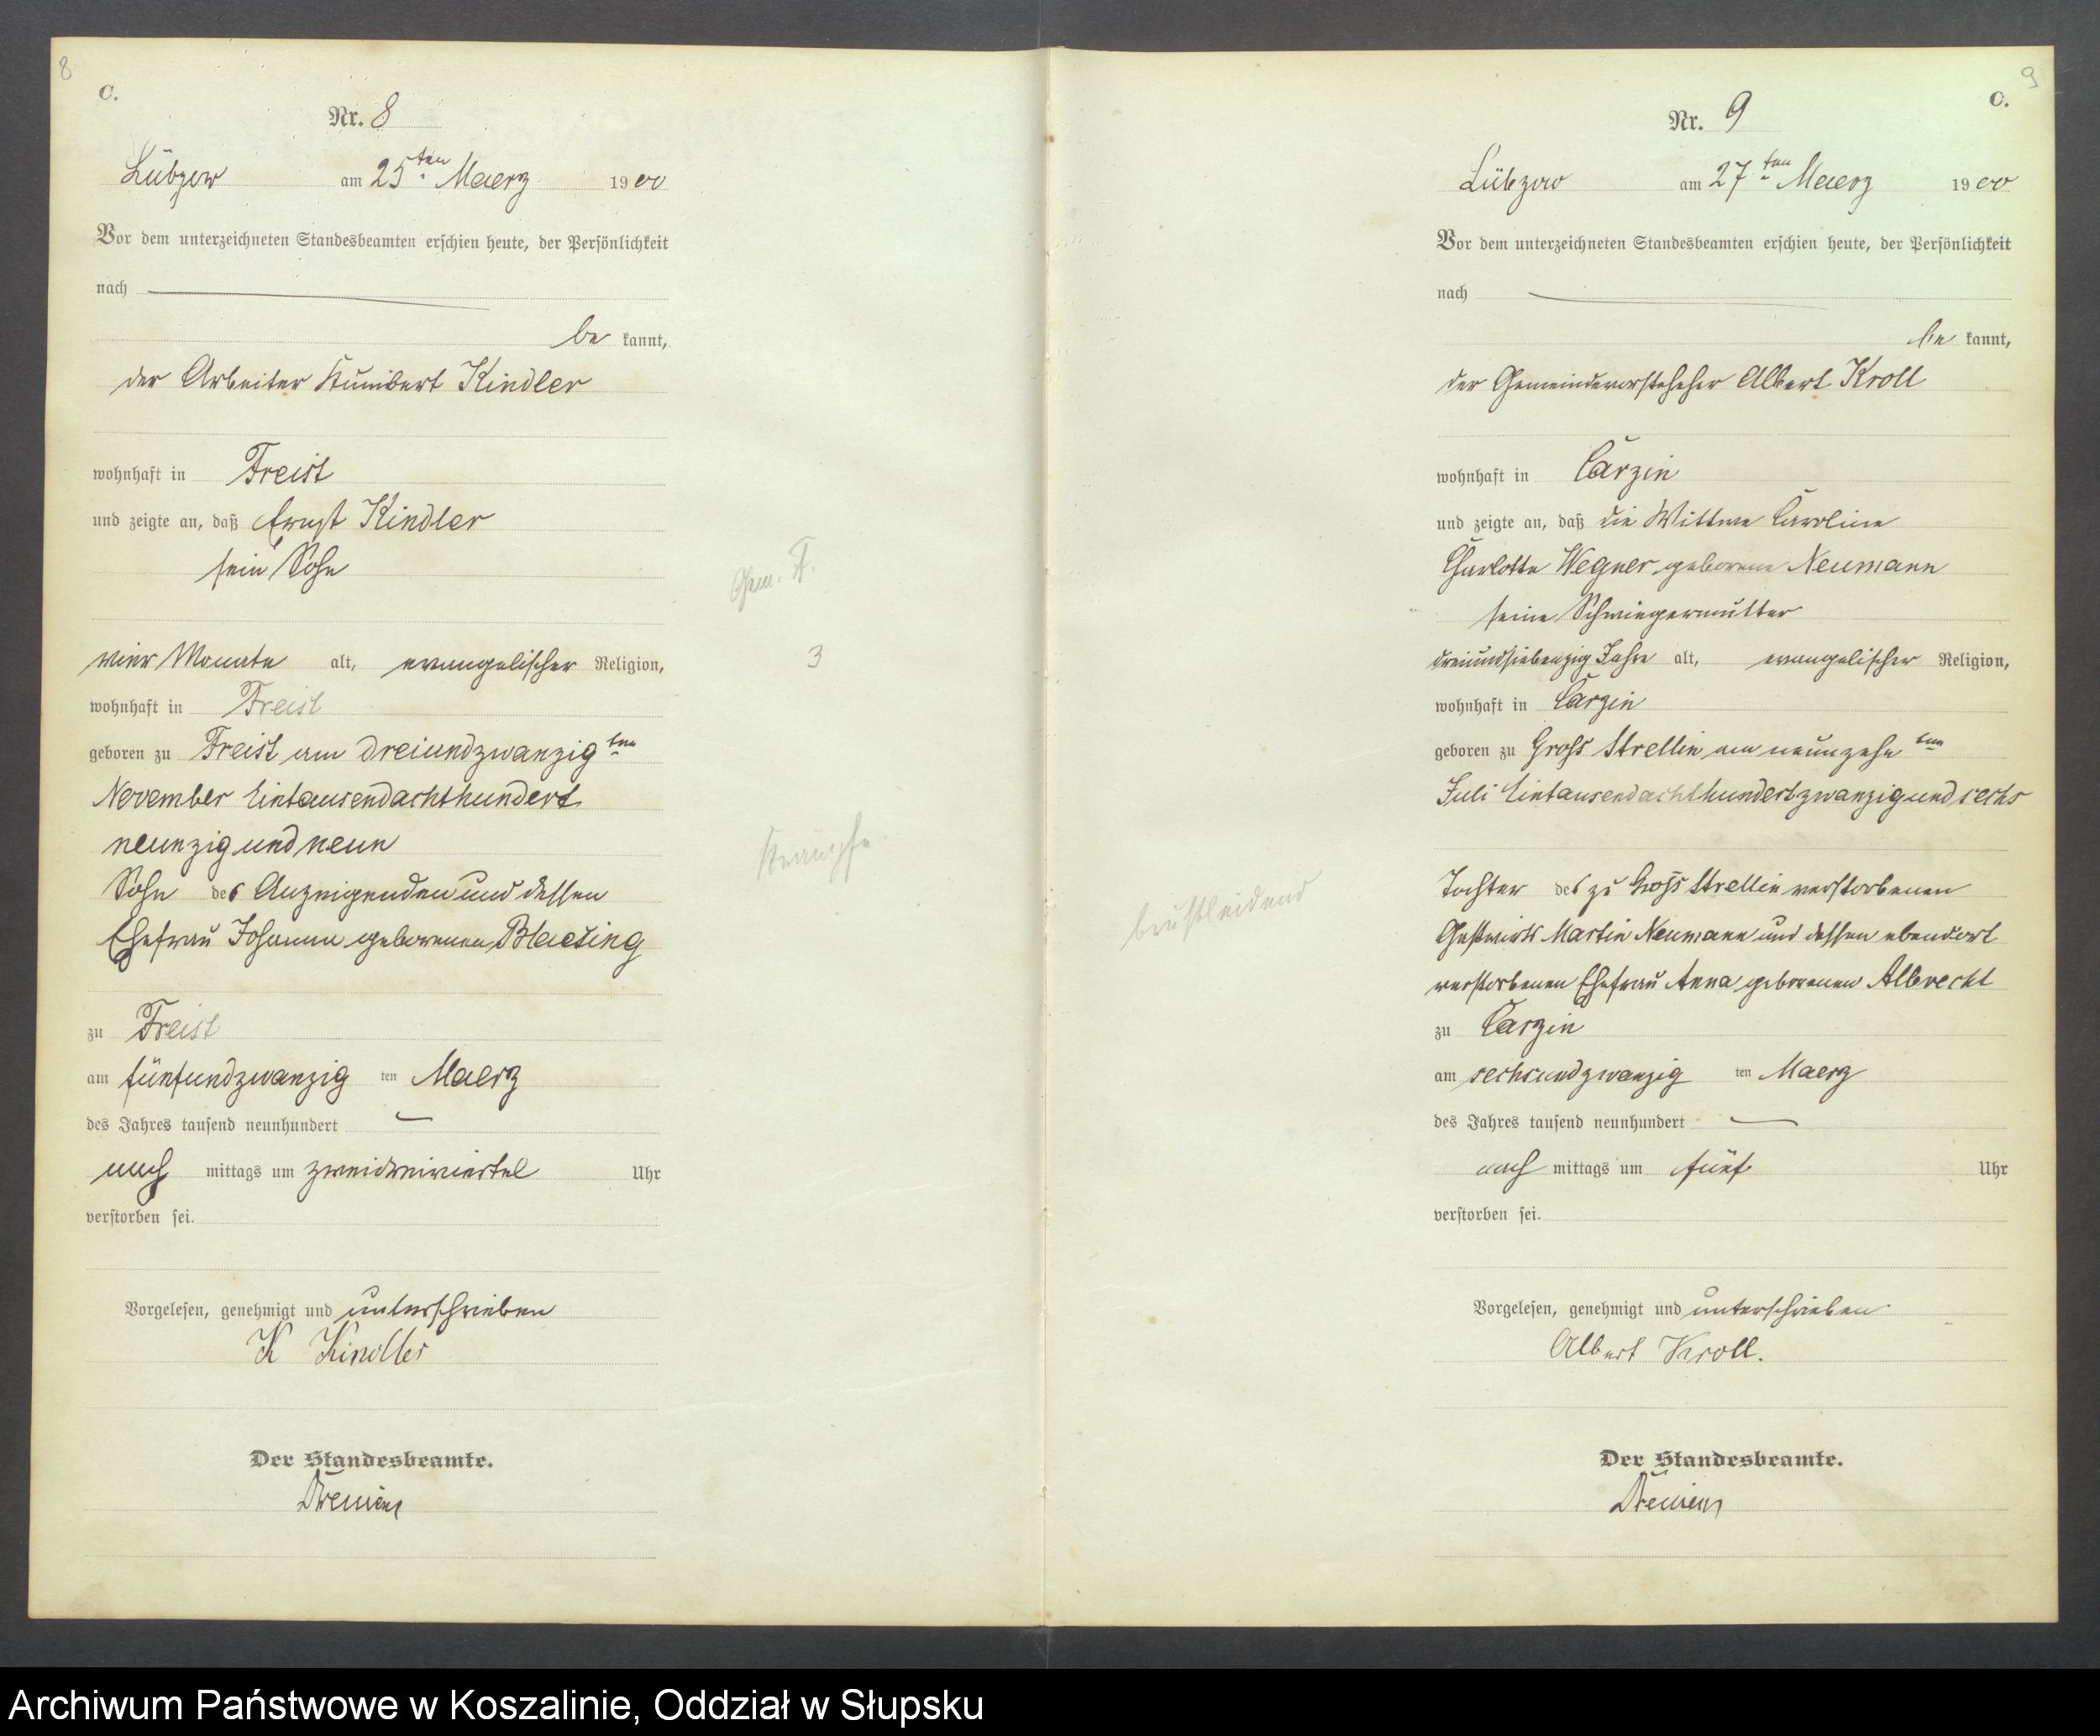 8
C.
Nr. 8
Lübzow am 25ten Maerz 1900
Vor dem unterzeichneten Standesbeamten erschien heute, der Persönlichkeit
nach
be kannt,
der Arbeiter Kunibert Kindler
wohnhaft in Freist
und zeigte an, daß Ernst Kindler
sein Sohn
vier Monate alt, evangelischer Religion,
wohnhaft in Freist
geboren zu Freist am dreiundzwanzigten
November Eintausendachthundert
neunzig und neun
Sohn des Anzeigenden und dessen
Ehefrau Johanna geborenen Blaesing
zu Freist
am fünfundzwanzig ten Maerz
des Jahres tausend neunhundert
nach mittags um zweidreiviertel Uhr
verstorben sei.
Vorgelesen, genehmigt und unterschrieben
K Kindler
Der Standesbeamte.
Gem. F.
3
Krampfe
9
C.
Nr. 9
Lübzow am 27ten Maerz 1900
Vor dem unterzeichneten Standesbeamten erschien heute, der Persönlichkeit
nach
be kannt,
der Gemeindevorsteher Albert Kroll
wohnhaft in Carzin
und zeigte an, daß die Wittwe Caroline
Charlotte Wegner geborene Neumann
seine Schwiegermutter
dreiundsiebenzig Jahre alt, evangelischer Religion,
wohnhaft in Carzin
geboren zu Groß Strellin am neunzehnten
Juli Eintausendachthundertzwanzigundsechs
Tochter des zu Groß Strellin verstorbenen
Gastwirts Martin Neumann und dessen ebendort
verstorbenen Ehefrau Anna geborenen Albrecht
zu Carzin
am sechsundzwanzig ten Maerz
des Jahres tausend neunhundert
nach mittags um fünf Uhr
verstorben sei.
Vorgelesen, genehmigt und unterschrieben
Albert Kroll.
Der Standesbeamte.
brustleidend
Archiwum Państwowe w Koszalinie, Oddział w Słupsku